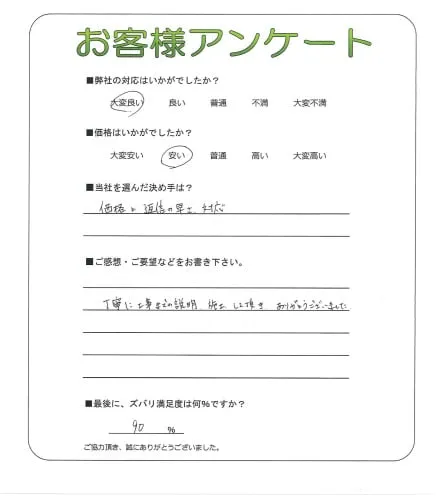 お客様アンケート
■弊社の対応はいかがでしたか？
大変良い 良い 普通 不満 大変不満
■価格はいかがでしたか？
大変安い 安い 普通 高い 大変高い
■当社を選んだ決め手は？
価格と返信の早さ、対応
■ご感想・ご要望などをお書き下さい。
丁寧に工事までの説明 施工 して頂き ありがとうございました
■最後に、ズバリ満足度は何%ですか？
90 %
ご協力頂き、誠にありがとうございました。